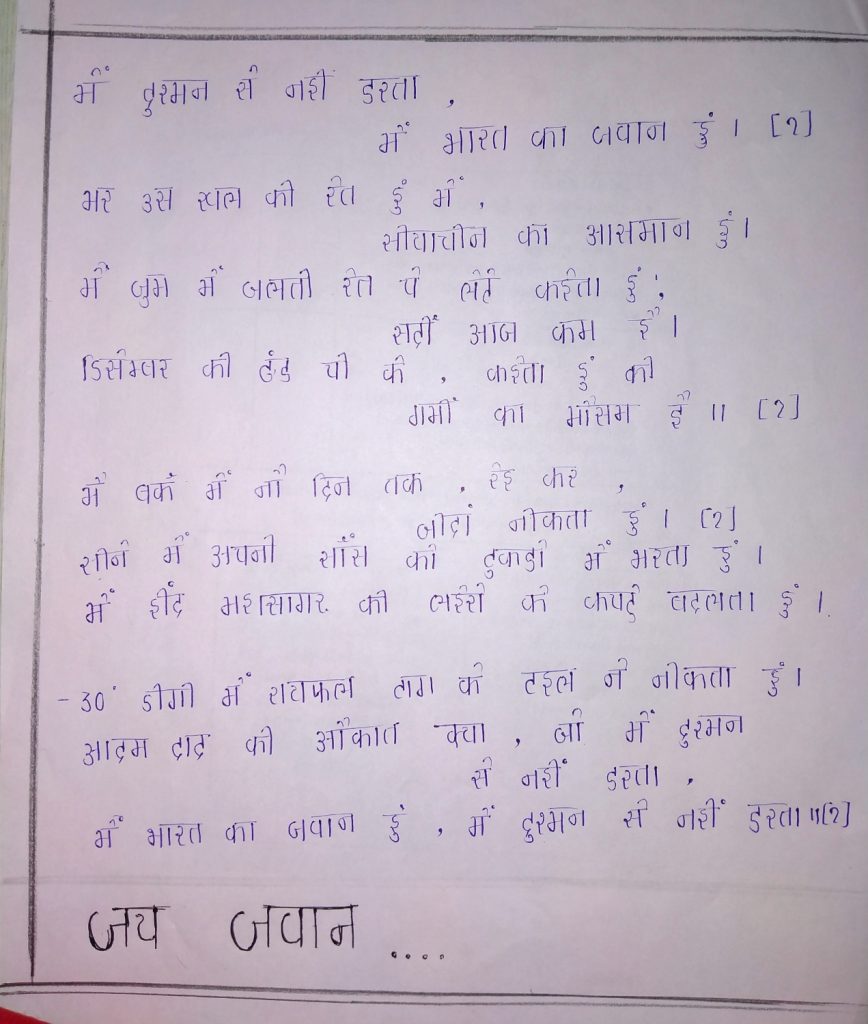 मैं दुश्मन से नहीं डरता ,
मैं भारत का जवान हुं । [२]
मर उस स्थल की रेत हुं मैं ,
सीयाचीन का आसमान हुं ।
मैं जुम में जलती रेत पे लेटे कहेता हुं ,
सर्दी आज कम है ।
डिसेम्बर की ठंड पी के , कहेता हुं की
गर्मी का मौसम है ॥ [२]
मै बर्फ में नौ दिन तक , रेह कर ,
जींदा नीकता हुं । [२]
सीने में अपनी साँस को टुकडो में भरता हुं ।
मैं हींद महासागर की लहेरो के कपड़े बदलता हुं ।
-30° डीग्री में रायफल ताग के टहल ने नीकता हुं ।
आदम दाद की औकात क्या , जो मैं दुश्मन
से नहीं डरता ,
मैं भारत का जवान हुं , मैं दुश्मन से नहीं डरता ॥[२]
जय जवान ....